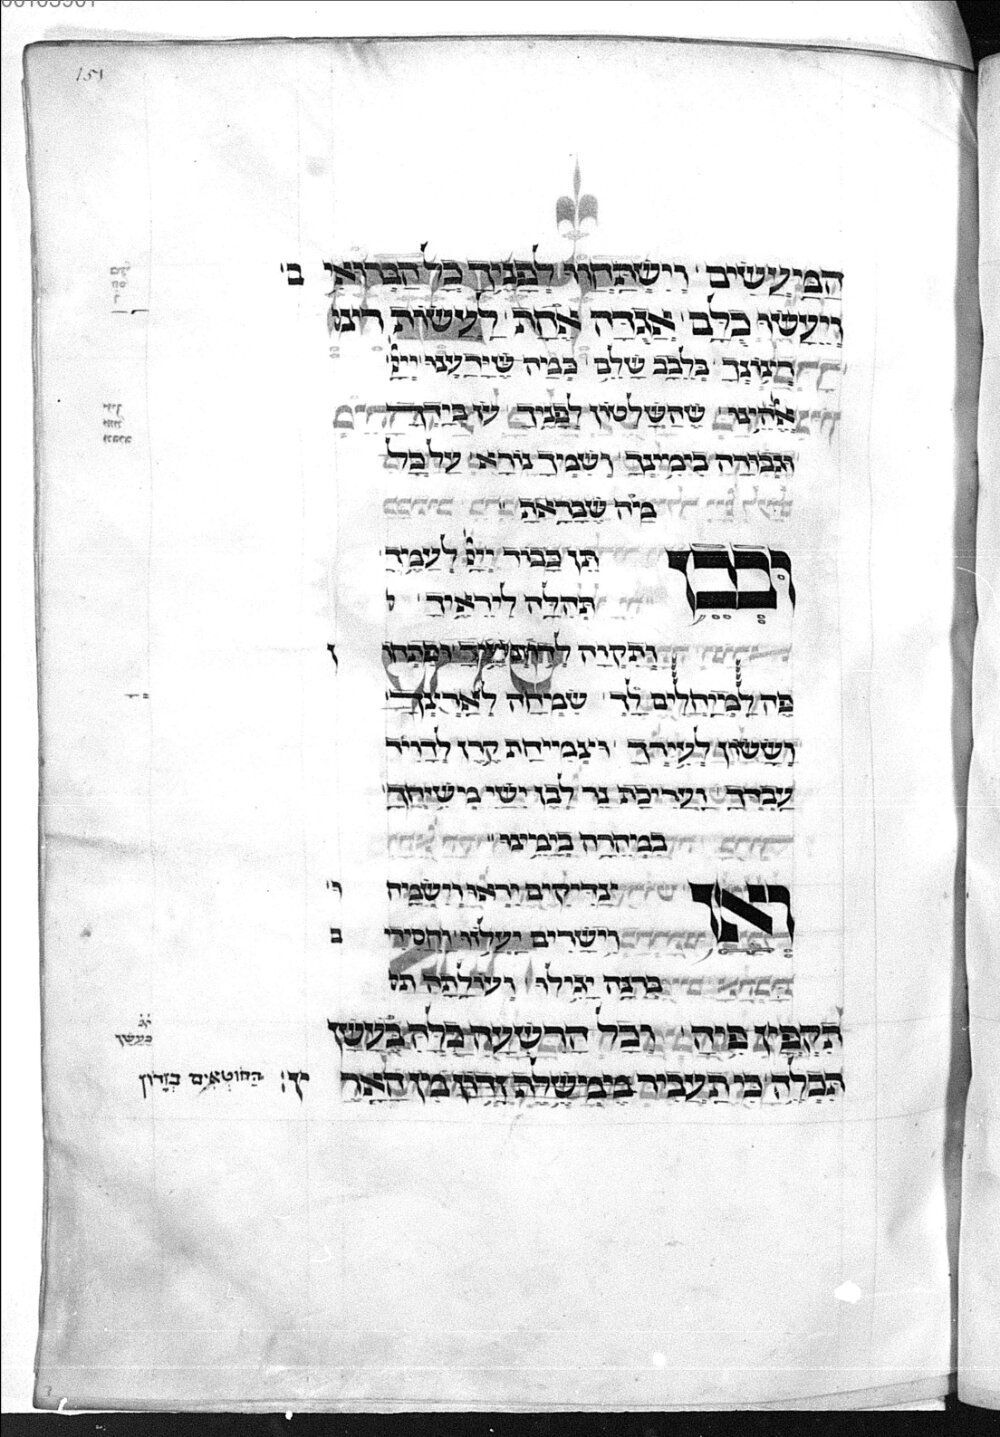 151
הַמַּעֲשִׂים וְיִשְׁתַּחֲווּ לְפָנֶיךָ כָּל הַבְּרוּאִי ב'
וְיֵעָשׂוּ כֻלָּם אֲגֻדָּה אַחַת לַעֲשׂוֹת רצונ
רְצוֹנְךָ בְּלֵבָב שָׁלֵם כְּמָה שֶׁיָּדַעְנוּ יְיָ
אֱלֹהֵינוּ שֶׁהַשָּׁלְטוֹן לְפָנֶיךָ עֹז בְּיָדְךָ
וּגְבוּרָה בִימִינֶךָ וְשִׁמְךָ נוֹרָא עַל כָּל
מַה שֶּׁבָּרָאתָ
וּבְכֵן תֵּן כָּבוֹד יְיָ לְעַמֶּךָ
תְּהִלָּה לִירֵאֶיךָ ו
וְתִקְוָה לְדוֹרְשֶׁיךָ וּפִתְחוֹ ן
פֶּה לַמְיַחֲלִים לָךְ שִׂמְחָה לְאַרְצֶךָ
וְשָׂשׂוֹן לְעִירֶךָ וּצְמִיחַת קֶרֶן לְדָוִד
עַבְדֶּךָ וַעֲרִיכַת נֵר לְבֶן יִשַׁי מְשִׁיחֶךָ
בִּמְהֵרָה בְיָמֵינוּ
וְאָז צַדִּיקִים יִרְאוּ וְיִשְׂמָח ו'
וִישָׁרִים יַעֲלֹזוּ וַחֲסִידִי ב
בְּרִנָּה יָגִילוּ וְעוֹלָתָה תק
תִּקְפָּץ פִּיהָ וְכָל הָרִשְׁעָה כֻּלָּהּ כְּעָשָׁן
תִּכְלֶה כִּי תַעֲבִיר מֶמְשֶׁלֶת זָדוֹן מִן הָאָר יך:
כֶּעָשָׁן
הַחוֹטְאִים בְּזָדוֹן